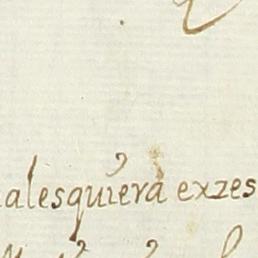 alesquiera exzes